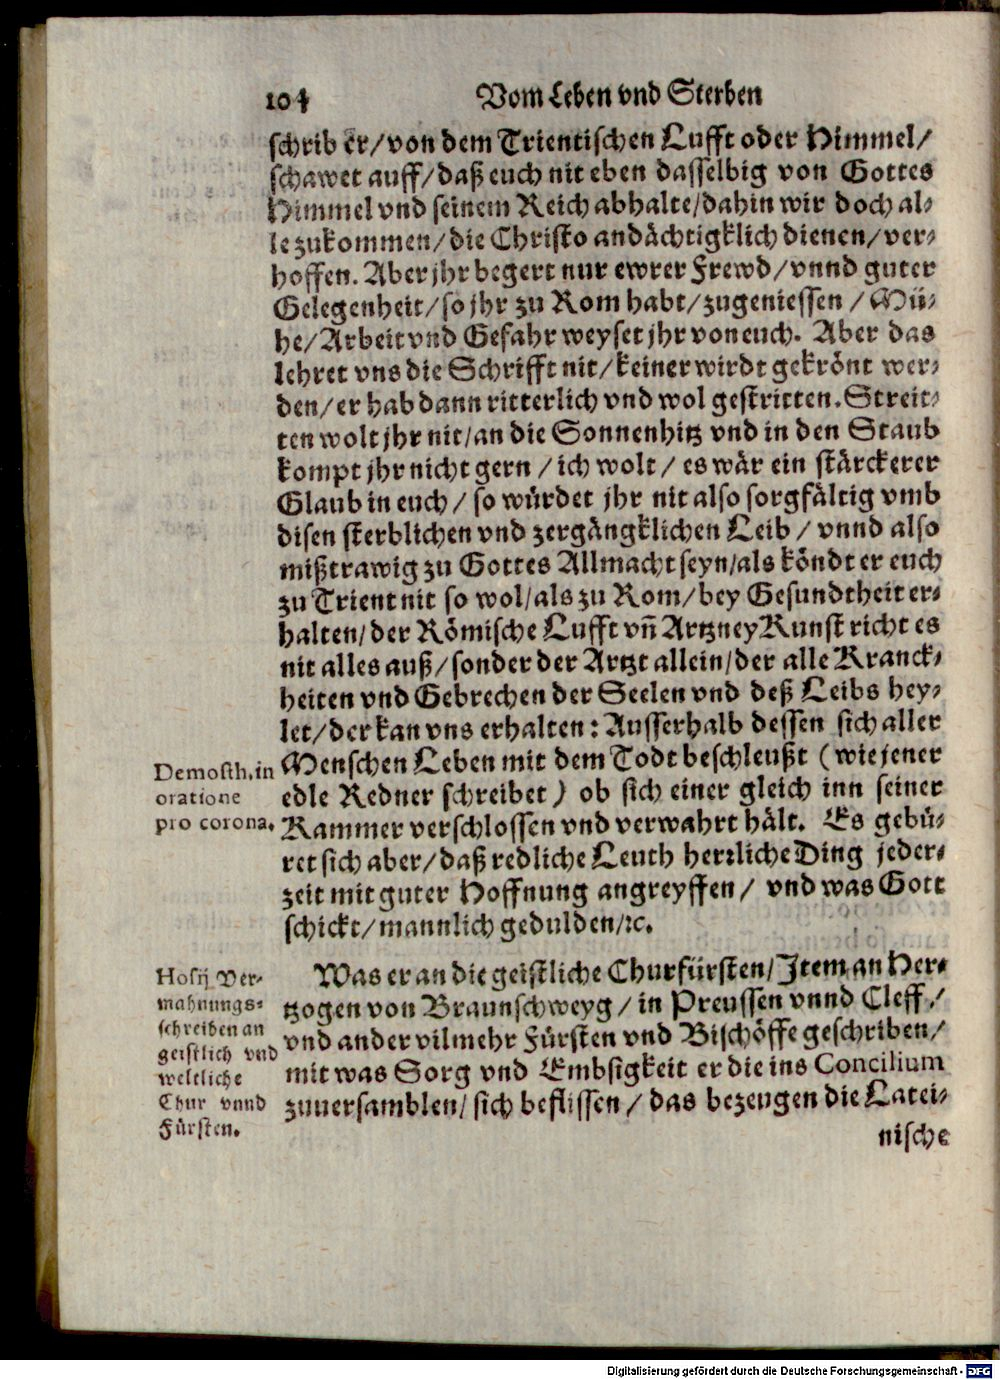 104 Vom Leben vnd Sterben
schrib er/von dem Trientischen Lufft oder Himmel/
schawet auff/daß euch nit eben dasselbig von Gottes
Himmel vnd seinem Reich abhalte/dahin wir doch al-
le zukommen/die Christo andächtigklich dienen/ver-
hoffen. Aber jhr begert nur ewrer Frewd/vnnd guter
Gelegenheit/so jhr zu Rom habt/zugeniessen/Mü-
he/Arbeit vnd Gefahr weyset jhr von euch. Aber das
lehret vns die Schrifft nit/keiner wirdt gekrönt wer-
den/er hab dann ritterlich vnd wol gestritten. Streit-
ten wolt jhr nit/an die Sonnenhitz vnd in den Staub
kompt jhr nicht gern/ich wolt/es wär ein stärckerer
Glaub in euch/so würdet jhr nit also sorgfältig vmb
disen sterblichen vnd zergängklichen Leib/vnnd also
mißtrawig zu Gottes Allmacht seyn/als köndt er euch
zu Trient nit so wol/als zu Rom/bey Gesundtheit er-
halten/der Römische Lufft vñ Artzney Kunst richt es
nit alles auß/sonder der Artzt allein/der alle Kranck-
heiten vnd Gebrechen der Seelen vnd deß Leibs hey-
let/der kan vns erhalten: Ausserhalb dessen sich aller
Menschen Leben mit dem Todt beschleußt (wie jener
edle Redner schreibet) ob sich einer gleich inn seiner
Kammer verschlossen vnd verwahrt hält. Es gebü-
ret sich aber/daß redliche Leuth herꝛliche Ding jeder-
zeit mit guter Hoffnung angreyffen/vnd was Gott
schickt/mannlich gedulden/ꝛc.
Demosth. in
oratione
pro corona.
Was er an die geistliche Churfürsten/Item an Her-
tzogen von Braunschweyg/in Preussen vnnd Cleff/
vnd ander vilmehr Fürsten vnd Bischöffe geschriben/
mit was Sorg vnd Embsigkeit er die ins Concilium
zuuersamblen/sich beflissen/das bezeugen die Latei-
nische
Hosij Ver-
mahnungs-
schreiben an
geistlich vnd
weltliche
Chur vnnd
Fürsten.
Digitalisierung gefördert durch die Deutsche Forschungsgemeinschaft - DFG